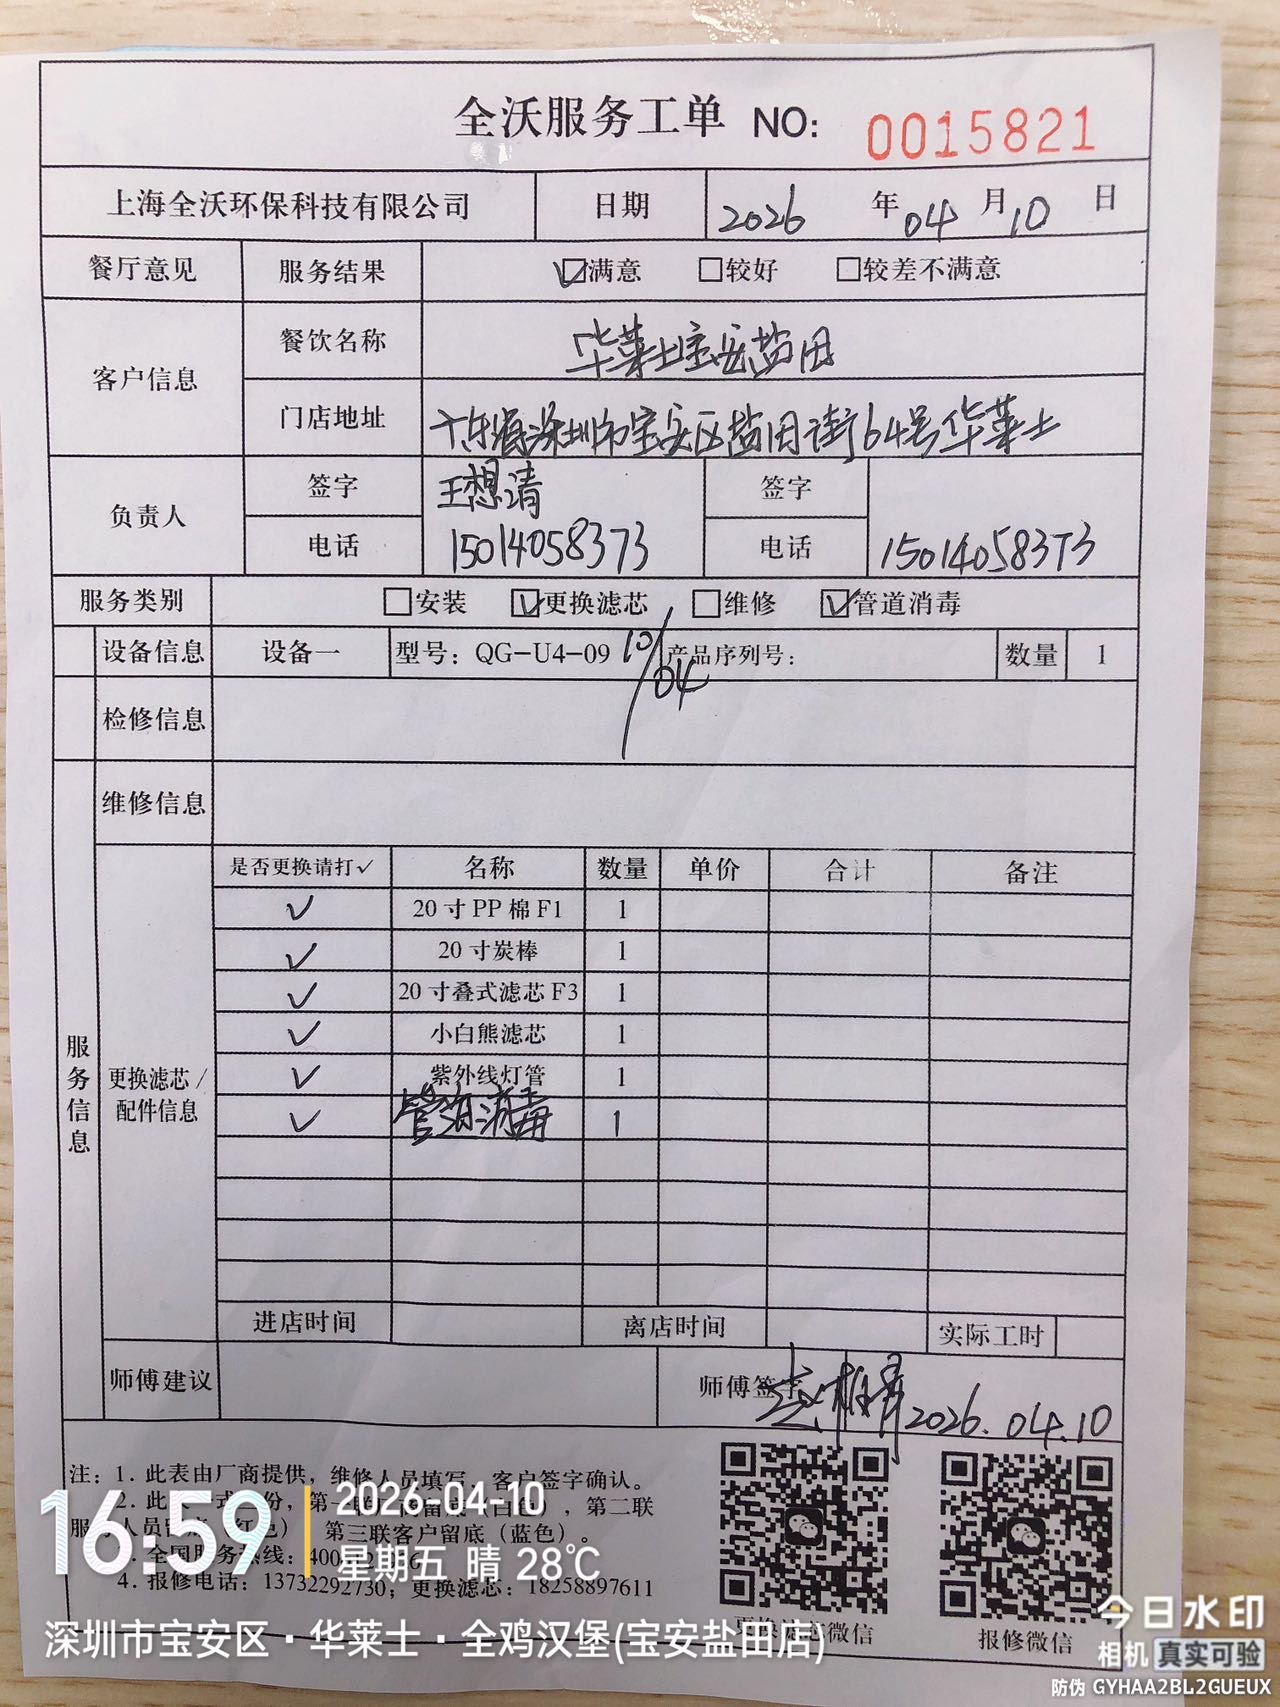 全沃服务工单 NO: 0015821
上海全沃环保科技有限公司 日期 2026 年 04 月 10 日
餐厅意见 服务结果 ☑满意 □较好 □较差不满意
客户信息 餐饮名称 华莱士宝安盐田
门店地址 广东省深圳市宝安区盐田街64号华莱士
负责人 签字 王想清 签字
电话 15014058373 电话 15014058373
服务类别 □安装 ☑更换滤芯 □维修 ☑管道消毒
设备信息 设备一 型号：QG-U4-09 10/04 产品序列号： 数量 1
检修信息
维修信息
服务信息
更换滤芯/配件信息
是否更换请打✓ 名称 数量 单价 合计 备注
✓ 20寸PP棉F1 1
✓ 20寸炭棒 1
✓ 20寸叠式滤芯F3 1
✓ 小白熊滤芯 1
✓ 紫外线灯管 1
✓ 管道消毒 1
进店时间 离店时间 实际工时
师傅建议 师傅签字 2026.04.10
注：1. 此表由厂商提供，维修人员填写，客户签字确认。
2. 此 式 份，第 留底（白色），第二联
服 人员 （红色） 第三联客户留底（蓝色）。
全国服务热线：400
4. 报修电话：13732292730；更换滤芯：18258897611
更换滤芯微信 报修微信
16:59 2026-04-10
星期五 晴 28℃
深圳市宝安区·华莱士·全鸡汉堡(宝安盐田店)
今日水印
相机 真实可验
防伪 GYHAA2BL2GUEUX